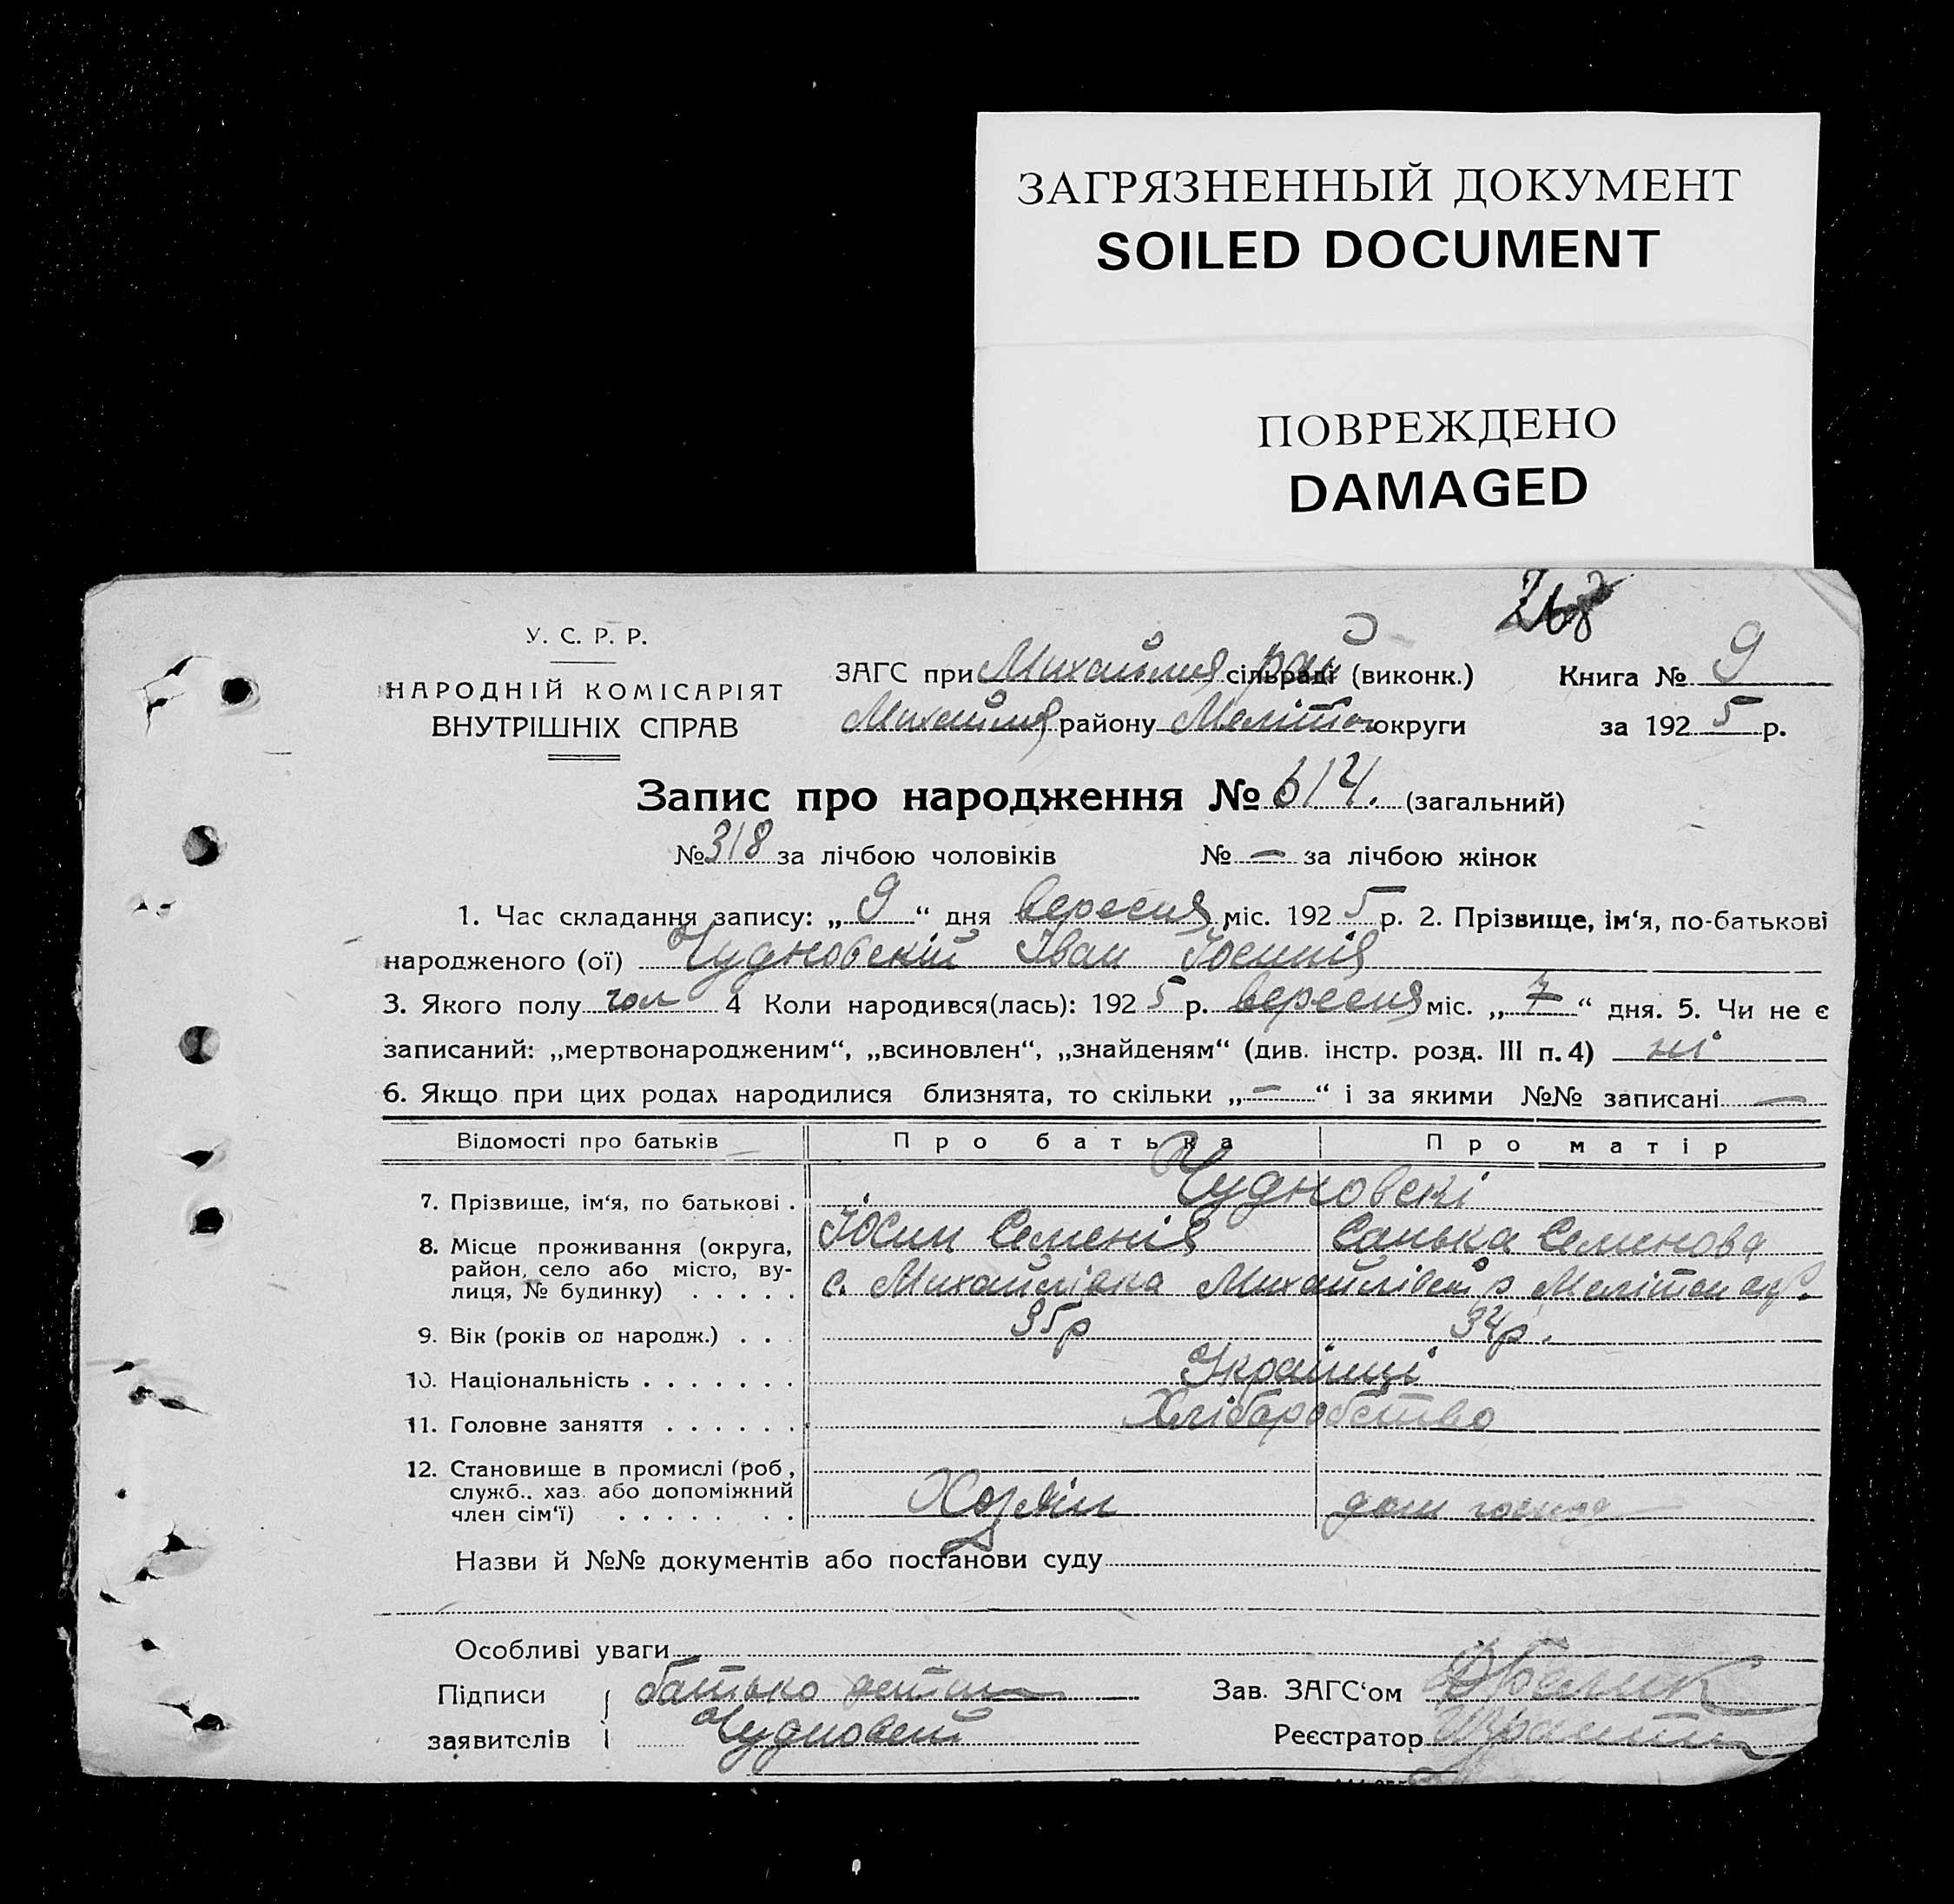 ЗАГРЯЗНЕННЫЙ ДОКУМЕНТ
SOILED DOCUMENT
ПОВРЕЖДЕНО
DAMAGED
У. С. Р. Р.
НАРОДНІЙ КОМІСАРІЯТ
ВНУТРІШНІХ СПРАВ
ЗАГС при Михайлів сільраді рай (виконк.) Книга № 9
Михайлів району Меліто округи за 1925 р.
Запис про народження № 614. (загальний)
№ 318 за лічбою чоловіків № — за лічбою жінок
1. Час складання запису: „9“ дня вересня міс. 1925 р. 2. Прізвище, ім‘я, по-батькові
народженого (ої) Чудновский Іван
3. Якого полу чол 4 Коли народився(лась): 1925 р. вересня міс. „7“ дня. 5. Чи не є
записаний: „мертвонародженим“, „всиновлен“, „знайденям“ (див. інстр. розд. III п. 4) ні
6. Якщо при цих родах народилися близнята, то скільки „—“ і за якими №№ записані —
Відомості про батьків Про батька Про матір
7. Прізвище, ім‘я, по батькові . Чудновскі
8. Місце проживання (округа, Йосип Семенів Санька Семенова
район, село або місто, ву-
лиця, № будинку) . . . . . с. Михайлівка Михайлівск р Мелітоп окр.
9. Вік (років од народж.) . . . 35р 34р.
10. Національність . . . . . . . Українці
11. Головне заняття . . . . . . Хліборобство
12. Становище в промислі (роб.,
служб., хаз. або допоміжний
член сім‘ї) . . . . . . . . Хозяін дом госпо
Назви й №№ документів або постанови суду
Особливі уваги
Підписи батько Зав. ЗАГС‘ом
заявителів Чудновский Реєстратор